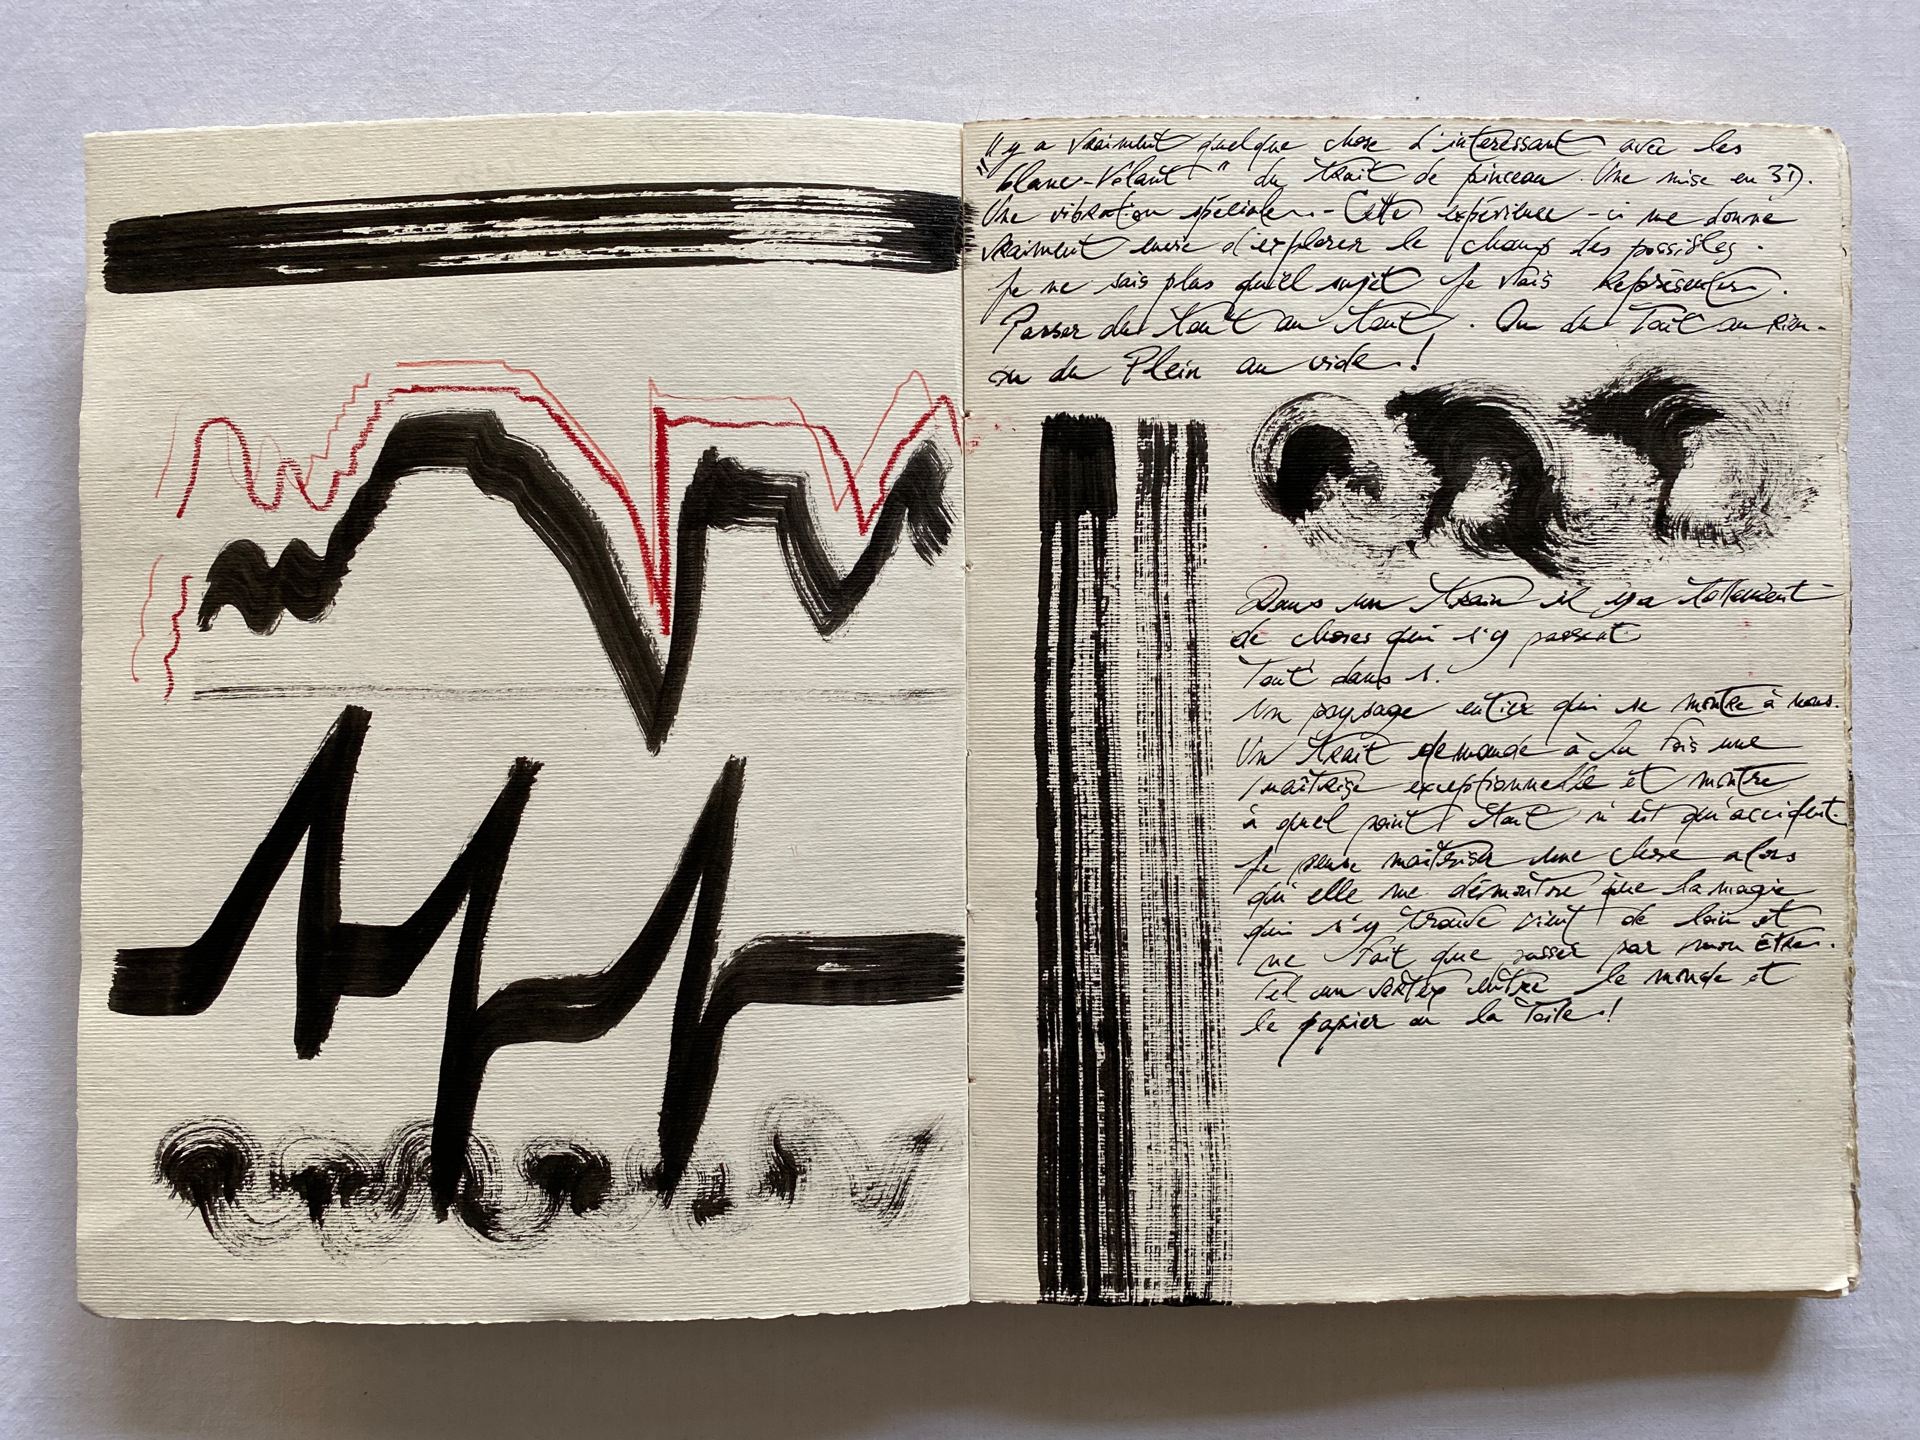 Il y a vraiment quelque chose d'intéressant avec les
"blanc-volant" du trait de pinceau. Une mise en 3D.
Une vibration spéciale. - Cette expérience-ci me donne
vraiment envie d'explorer le champs des possibles.
Je ne sais plus quel sujet je vais représenter.
Passer du tout au tout. Ou du Tout au Rien.
ou du Plein au vide !
Dans un train il y a tellement
de choses qui s'y passent.
Tout dans 1.
Un paysage entier qui se montre à nous.
Un trait demande à la fois une
maîtrise exceptionnelle et montre
à quel point tout n'est qu'accident.
Je pense maîtriser une chose alors
qu'elle me démontre que la magie
qui s'y trouve vient de loin et
ne fait que passer par mon Être.
Tel un vortex entre le monde et
le papier ou la toile !